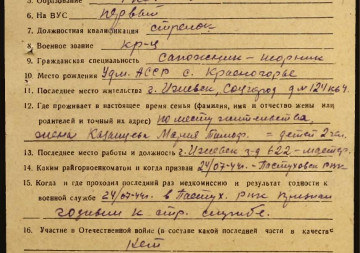 5. Образование
6. На ВУС первый
7. Должностная квалификация стрелок
8. Военное звание кр-ц
9. Гражданская специальность сапожник-
10. Место рождения Удм. АССР с. Красногорье
11. Последнее место жительства г. Ижевск, Соцгород д № 124 кв 4.
12. Где проживает в настоящее время семья (фамилия, имя и отчество жены или
родителей и точный их адрес) по месту жительства,
жена Мария детей 2 чел.
13. Последнее место работы и должность г. Ижевск з-д 622 - мастер.
14. Каким райгорвоенкоматом и когда призван 24/07-44г. Пастуховск РВК
15. Когда и где проходил последний раз медкомиссию и результат годности к
военной службе 24/07-44г. в Пастух. РВК признан
годным к стр. службе.
16. Участие в Отечественной войне (в составе какой последней части и в качестве
Нет